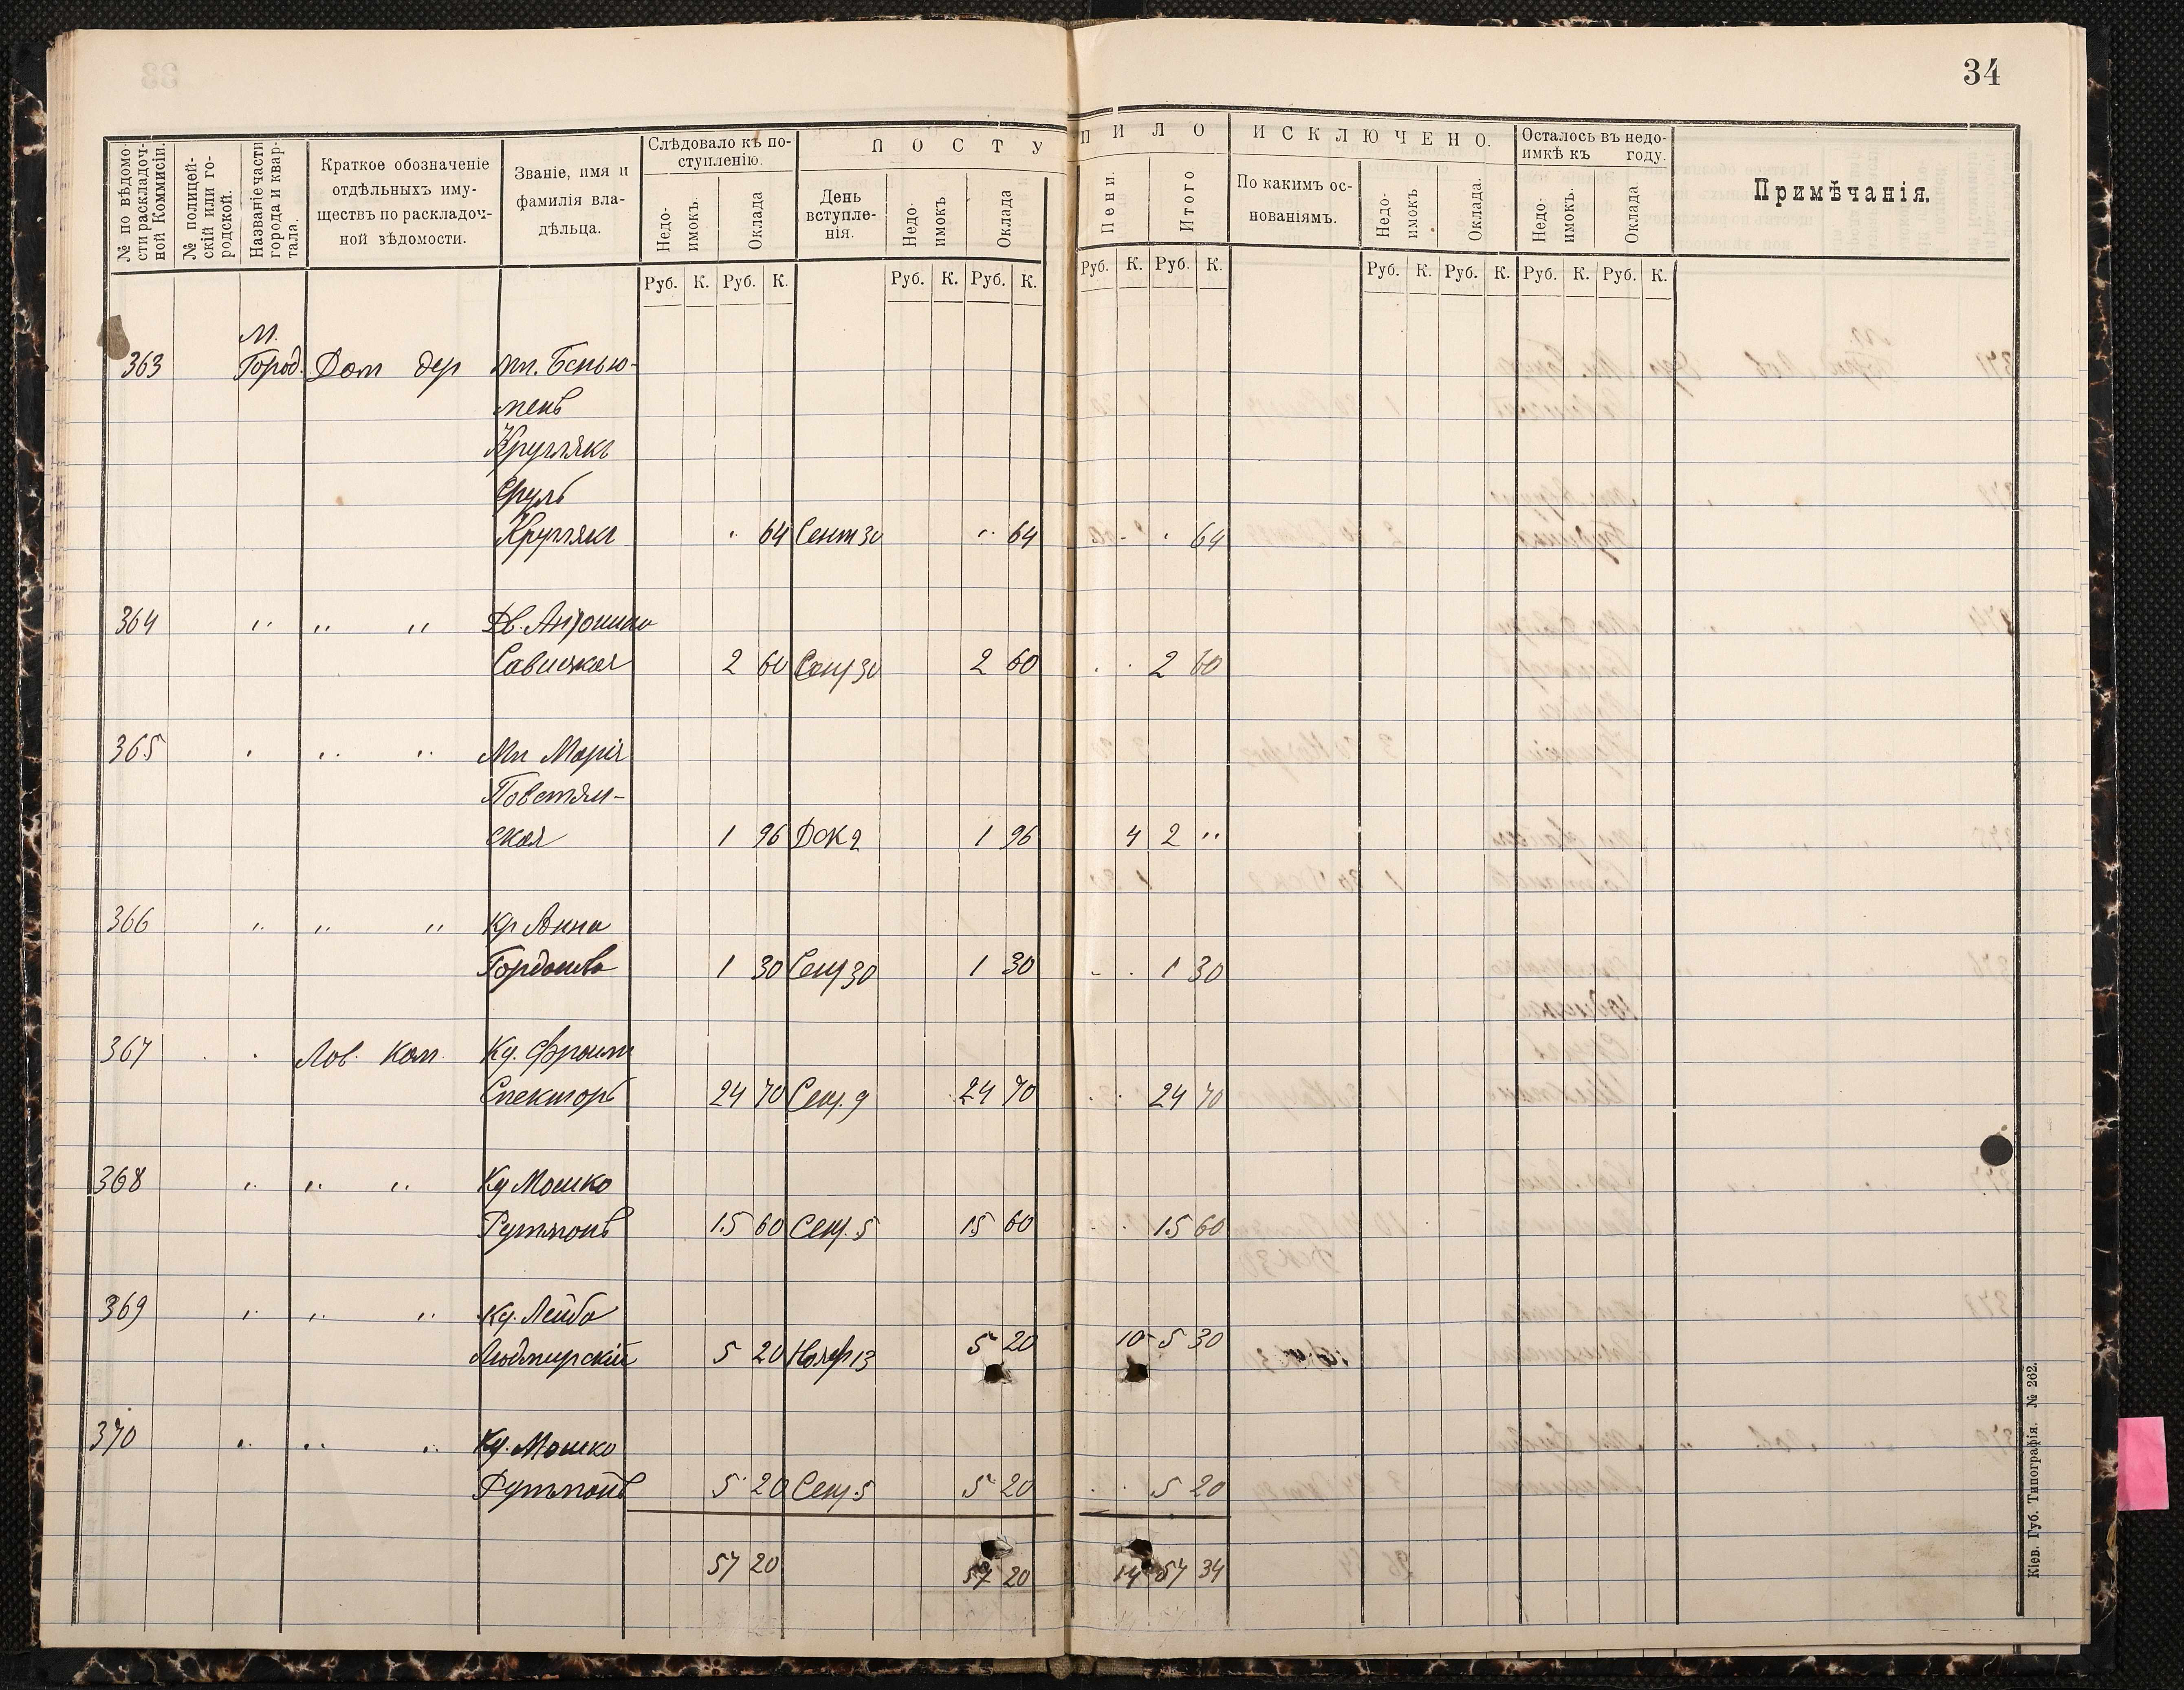 34
№ по вѣдомости раскладочной Коммисіи.
№ полицейскій или городской.
Названіе части города и квартала.
Краткое обозначеніе отдѣльныхъ имуществъ по раскладочной вѣдомости.
Званіе, имя и фамилія владѣльца.
Слѣдовало къ поступленію.
Недоимокъ.
Оклада
ПОСТУПИЛО
День вступленія.
Недоимокъ
Оклада
Пени.
Итого
ИСКЛЮЧЕНО.
По какимъ основаніямъ.
Недоимокъ
Оклада.
Осталось въ недоимкѣ къ году.
Недоимокъ.
Оклада
Примѣчанія.
Руб. К. Руб. К. Руб. К. Руб. К. Руб. К. Руб. К. Руб. К. Руб. К. Руб. К. Руб. К.
М.
363 Город. Дом дер
менъ
Круглякъ
Сруль
Круглякъ " 64 Сент 30 " 64 - " 64
364 " " " Дв.
Савицкая 2 60 Сент 30 2 60 " " 2 60
365 " " " Мщ Марія
Повстян-
ская 1 96 Дек 2 1 96 4 2 "
366 " " " Кр Анна
1 30 Сент 30 1 30 - " 1 30
367 " " Лов. Кам. Кц. Фроим
Спекторъ 24 70 Сент. 9 24 70 " " 24 70
368 " " " Кц Мошко
15 60 Сент. 5 15 60 " " 15 60
369 " " " Кц. Лейба
Людмирскій 5 20 Нояб 13 5 20 10 5 30
370 " " " Кц. Мошко
5 20 Сент. 5 5 20 " " 5 20
57 20 57 20 14 57 34
Кіев. Губ. Типографія. № 262.